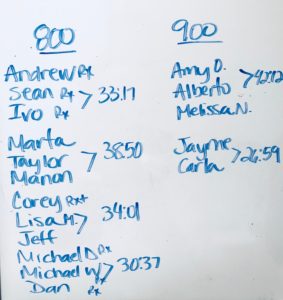 800
Andrew Rx
Sean Rx > 33:17
Ivo Rx
Marta
Taylor > 38:50
Manon
Corey Rx+
Lisa M. > 34:01
Jeff
Michael D Rx
Michael W > 30:37
Dan Rx
900
Amy O.
Alberto > 42:12
Melissa N.
Jayme > 26:59
Carla